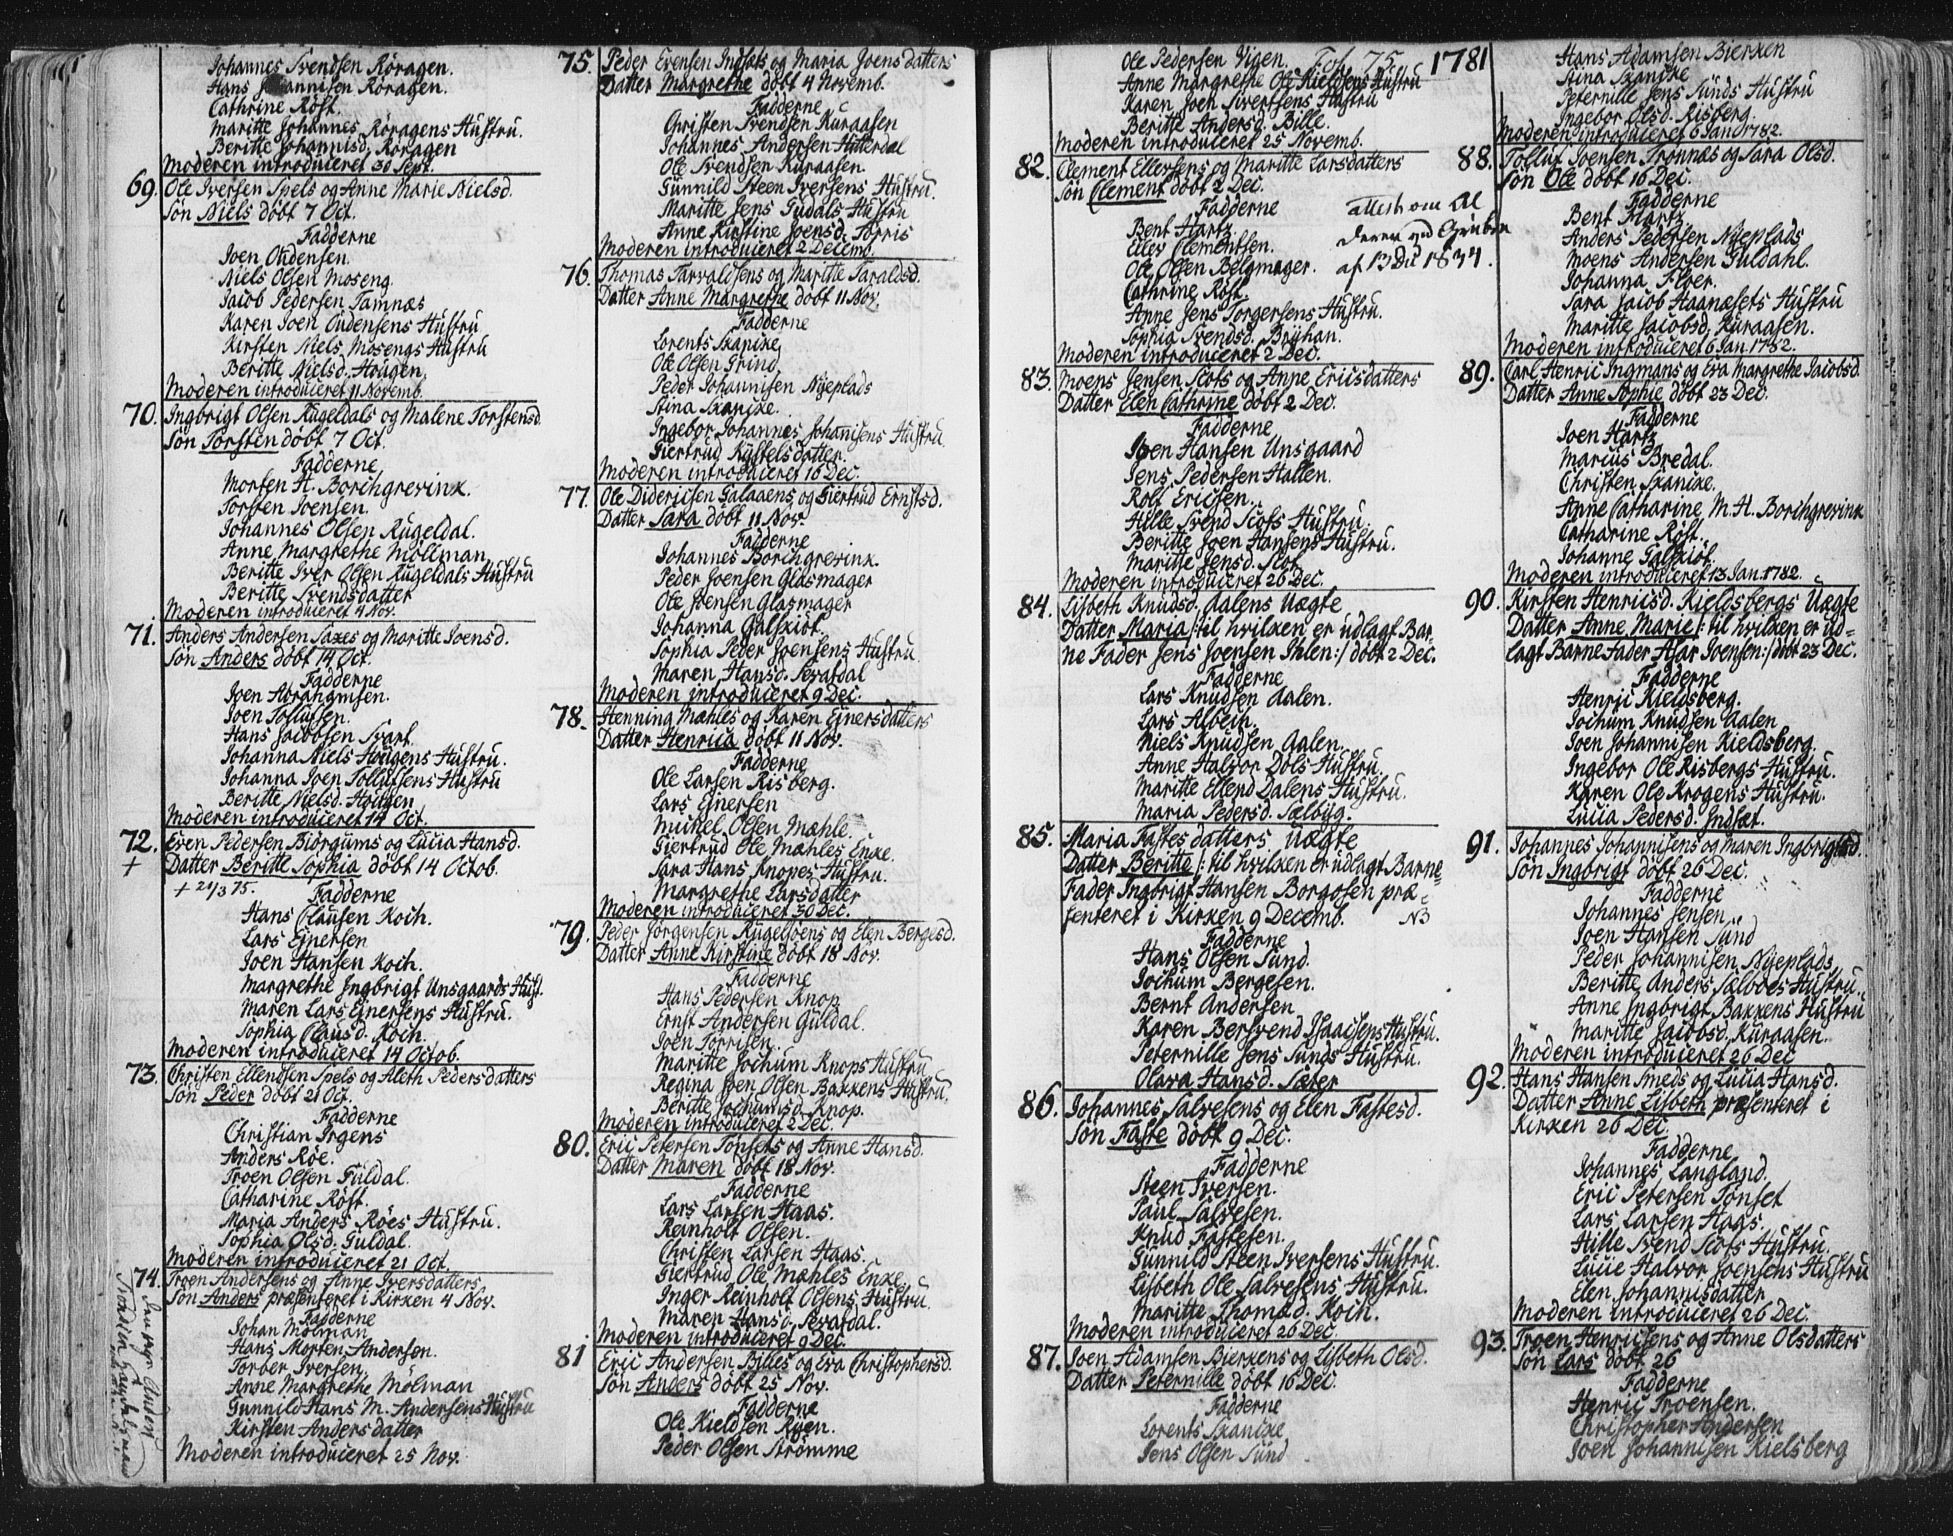 Johannes Svendsen Røragen.
Hans Johannisen Røragen.
Cathrine Røst.
Maritte Johannes Røragens Hustru.
Beritte Johannisd. Røragen
Moderen introduceret 30 Sept.
69. Ole Iversen Spels og Anne Marie Nielsd.
Søn Niels döbt 7 Oct.
Fadderne
Joen Oudensen.
Niels Olsen Moseng.
Jacob Pedersen Tamnæs
Karen Joen Oudensens Hustru
Kirsten Niels Mosengs Hustru
Beritte Nielsd. Hougen
Moderen introduceret 11 Novemb.
70. Ingbrigt Olsen Kugeldals og Malene Torstensd.
Søn Torsten döbt 7 Oct.
Fadderne
Morten H. Borchgrevink.
Torsten Joensen.
Johannes Olsen Kugeldal.
Anne Margrethe Möllman
Beritte Iver Olsen Kugeldals Hustru
Beritte Svendsdatter
Moderen introduceret 4 Nov.
71. Anders Andersen Saxes og Maritte Joensd.
Søn Anders döbt 14 Oct.
Fadderne
Joen Abrahamsen.
Joen Tollufsen.
Hans Jacobsen Svart
Johanna Niels Hougens Hustru.
Johanna Joen Tollufsens Hustru
Beritte Nielsd. Hougen
Moderen introduceret 14 Oct.
72. Even Pedersen Biörgums og Lucia Hansd.
+ Datter Beritte Sophia döbt 14 Octob.
+ 21/3 75.
Fadderne
Hans Clausen Koch.
Lars Ejnersen
Joen Hansen Koch.
Margrethe Ingbrigt Unsgaards Hust.
Maren Lars Ejnersens Hustru.
Sophia Clausd. Koch.
Moderen introduceret 14 Octob.
73. Christen Ellendsen Spels og Aleth Pedersdatters
Søn Peder döbt 21 Oct.
Fadderne
Christian Irgens
Anders Röe.
Troen Olsen Fuldal.
Catharine Röst.
Maria Anders Röes Hustru.
Sophia Olsd. Guldal.
Moderen introduceret 21 Oct.
74. Troen Andersens og Anne Iversdatters
Søn Anders præsenteret i Kirken 4 Nov.
Fadderne
Johan Mölman
Hans Morten Andersen.
Torber Iversen
Anne Margrethe Mölman
Gunnild Hans M. Andersens Hustru
Kirsten Andersdatter
Moderen introduceret 25 Nov.
75. Peder Evensen Indsets og Maria Joens datters
Datter Margrethe döbt 4 Novemb.
Fadderne
Christen Svendsen Kuraasen
Johannes Andersen Hitterdal
Ole Svendsen Kuraasen.
Gunnild Steen Iversens Hustru.
Maritte Jens Gudals Hustru
Anne Kirstine Joensd. Torris
Moderen introduceret 2 Decemb.
76. Thomas Tarvaldsens og Maritte Taraldsd.
Datter Anne Margrethe döbt 11 Nov.
Fadderne
Lorents Skancke
Ole Olsen Grind
Peder Johannisen Nyeplads
Stina Skancke.
Ingebor Johannes Johannisens Hustru
Giertrud Kystelsdatter.
Moderen introduceret 16 Dec.
77. Ole Didericsen Galaaens og Giertrud Ernstsd.
Datter Sara döbt 11 Nov.
Fadderne
Johannes Borchgrevink.
Peder Joensen Glasmager
Ole Joensen Glasmager
Johanna Galskiöt.
Sophia Peder Joensens Hustru
Maren Hansd. Sevatdal
Moderen introduceret 9 Dec.
78. Henning Mæhles og Karen Ejnersdatters
Datter Henrica döbt 11 Nov.
Fadderne
Ole Larsen Risberg.
Lars Ejnersen
Michel Olsen Mæhle.
Giertrud Ole Mæhles Enke.
Sara Hans Knopes Hustru.
Margrethe Larsdatter
Moderen introduceret 30 Dec.
79. Peder Jörgensen Kugelsöens og Elen Bergesd.
Datter Anne Kirstine döbt 18 Nov.
Fadderne
Hans Pedersen Knop
Ernst Andersen Guldal.
Joen Torrisen.
Maritte Jochum Knops Hustru
Regina Joen Olsen Bakkens Hustru.
Beritte Jochumsd. Knop.
Moderen introduceret 2 Dec.
80. Eric Petersen Tönsets og Anne Hansd.
Datter Maren döbt 18 Nov.
Fadderne
Lars Larsen Haas.
Reinholt Olsen.
Christen Larsen Haas.
Giertrud Ole Mæhles Enke
Inger Reinholt Olsens Hustru.
Maren Hansd. Sevatdal.
Moderen introduceret 9 Dec.
81 Eric Andersen Billes og Eva Christophersd.
Søn Anders döbt 25 Nov.
Fadderne
Ole Kieldsen Ryen.
Peder Olsen Strömme
Ole Pedersen Vigen. Fol. 75. 1781
Anne Margrethe Ole Kieldsens Hustru
Karen Joen Sivertsens Hustru
Beritte Andersd. Bille.
Moderen introduceret 25 Novemb.
82. Clement Ellefsens og Maritte Larsdatters
Søn Clement döbt 2 Dec.
Fadderne
Bent Hartz
Ellev Clementsen.
Ole Olsen Belgmager.
Cathrine Röst.
Anne Jens Torgersens Hustru.
Sophia Svendsd. Bryhan.
Moderen introduceret 2 Dec.
83. Moens Jensen Scots og Anne Ericsdatters
Datter Elen Cathrine döbt 2 Dec.
Fadderne
Joen Hansen Unsgaard
Jens Pedersen Hallen.
Rolf Ericsen.
Hille Svend Scots Hustru.
Beritte Joen Hansens Hustru.
Maritte Jensd. Scot
Moderen introduceret 26 Dec.
84. Lisbeth Knudsd. Aalens Uægte
Datter Maria /: til hvilken er udlagt Bar-
ne Fader Jens Joensen Ihlen :/ döbt 2 Dec.
Fadderne
Lars Knudsen Aalen.
Lars Albech.
Niels Knudsen Aalen.
Anne Halvor Dols Hustru.
Maritte Ellend Dalens Hustru.
Maria Pedersd. Sælbyg.
85. Maria Fastes datters Uægte
Datter Beritte /: til hvilken er udlagt Barne-
Fader Ingbrigt Hansen Borgosen præ-
senteret i Kirken 9 Decemb.
Fadderne
Hans Olsen Sund.
Jochum Bergesen.
Bernt Andersen.
Karen Bersvend Isaacsens Hustru.
Peternille Jens Sunds Hustru.
Olava Hansd. Sæter
86. Johannes Salvesens og Elen Fastesd.
Søn Faste döbt 9 Dec.
Fadderne
Steen Iversen.
Paul Salvesen.
Knud Fastesen.
Gunnild Steen Iversens Hustru.
Lisbeth Ole Salvesens Hustru.
Maritte Thomasd. Koch.
Moderen introduceret 26 Dec.
87. Joen Adamsen Bierkens og Lisbeth Olsd.
Datter Peternille döbt 16 Dec.
Fadderne
Lorents Skancke
Jens Olsen Sund
Hans Adamsen Bierken
Stina Skancke
Peternille Jens Sunds Hustru
Ingebor Olsd. Risberg.
Moderen introduceret 6 Jan 1782.
88. Tolluf Joensen Trönnæs og Sara Olsd.
Søn Ole döbt 16 Dec.
Fadderne
Bent Hartz
Anders Pedersen Nyeplads
Moens Andersen Guldahl.
Johanna Floer.
Sara Jacob Haanæsets Hustru
Maritte Jacobsd. Kuraasen.
Moderen introduceret 6 Jan 1782.
89. Carl Henric Ingmans og Eva Margrethe Jacobsd
Datter Anne Sophie döbt 23 Dec.
Fadderne
Joen Hartz
Marcus Bredal.
Christen Skancke.
Anne Catharine M. H. Borchgrevink
Catharine Röst.
Johanne Galskiöt.
Moderen introduceret 13 Jan. 1782.
90. Kirsten Henricsd. Kieldsbergs Uægte
Datter Anne Marie /: til hvilken er ud-
lagt Barne Fader Ajar Joensen :/ döbt 23 Dec.
Fadderne
Henric Kieldsberg.
Jochum Knudsen Aalen
Joen Johannisen Kieldsberg.
Ingebor Ole Risbergs Hustru.
Karen Ole Krogens Hustru.
Lucia Pedersd. Indset.
91. Johannes Johannisens og Maren Ingbrigtsd.
Søn Ingbrigt döbt 26 Dec.
Fadderne
Johannes Jensen
Joen Hansen Sund
Peder Johannisen Nyeplads
Beritte Anders Sælboes Hustru.
Anne Ingbrigt Bakkens Hustru
Maritte Jacobsd. Kuraasen.
Moderen introduceret 26 Dec
92. Hans Hansen Smeds og Lucia Hansd.
Datter Anne Lisbeth præsenteret i
Kirken 26 Dec.
Fadderne
Johannes Langland.
Eric Petersen Tönset
Lars Larsen Haas.
Hille Svend Scots Hustru.
Lucie Halvor Joensens Hustru
Elen Johannisdatter
Moderen introduceret 26 Dec.
93. Troen Henricsens og Anne Olsdatters
Søn Lars döbt 26
Fadderne
Henric Troensen.
Christopher Andersen
Joen Johannisen Kielsberg